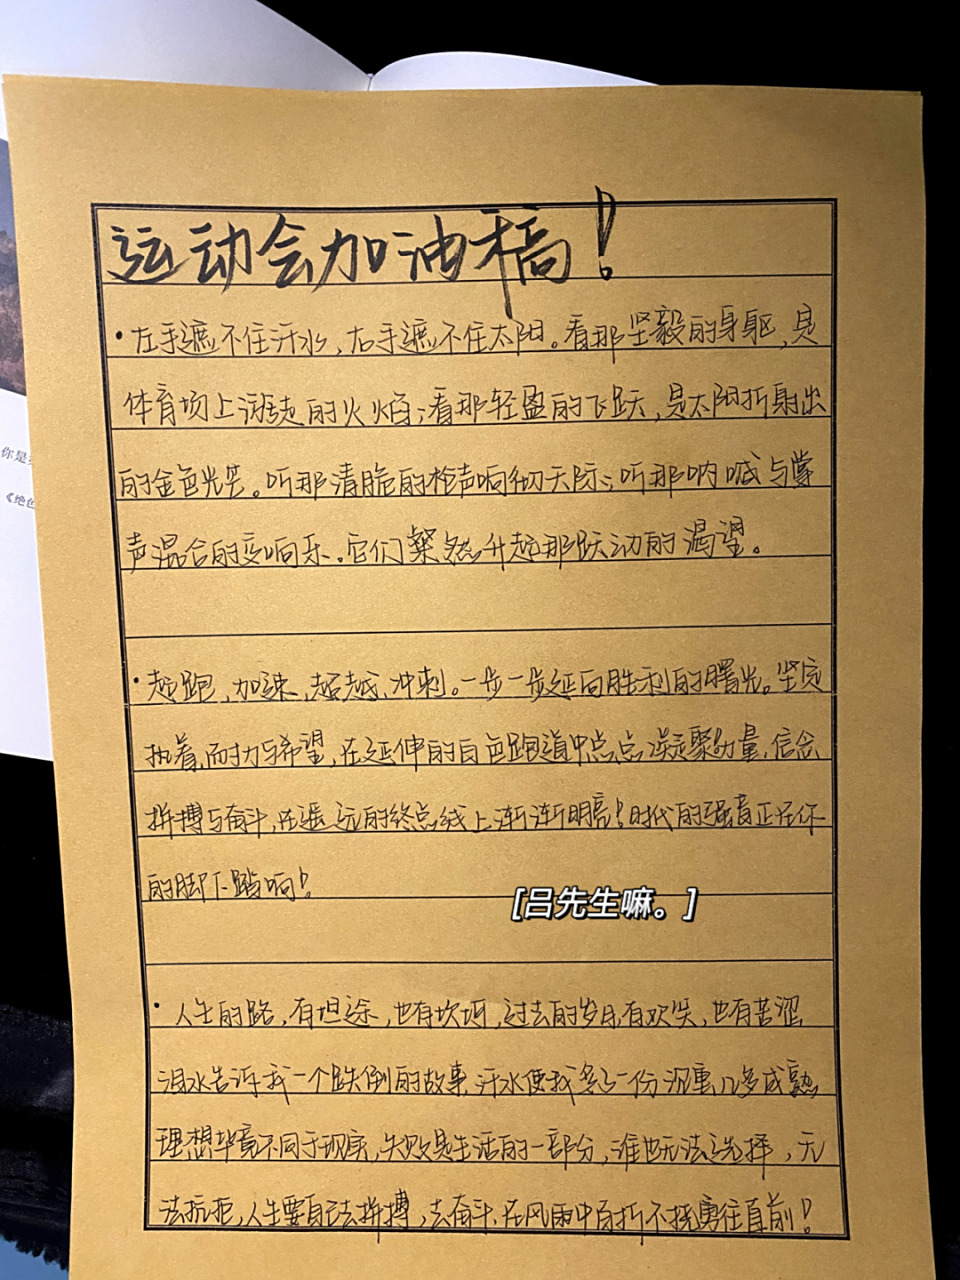 运动会加油稿！
·左手遮不住汗水，右手遮不住太阳。看那坚毅的身躯，是
体育场上流走的火焰；看那轻盈的飞跃，是太阳折射出
的金色光芒。听那清脆的枪声响彻天际；听那呐喊与掌
声混合的交响乐。它们粲然升起那跃动的渴望。
·起跑，加速，超越，冲刺。一步一步延向胜利的曙光。坚定
执着，耐力与希望，在延伸的白色跑道中点点凝聚力量，信念
拼搏与奋斗，在遥远的终点线上渐渐明亮！时代的强音正在你
的脚下踏响！
[吕先生嘛。]
·人生的路，有坦途，也有坎坷，过去的岁月有欢笑，也有苦涩
泪水告诉我一个跌倒的故事，汗水使我多了一份沉重几多成熟
理想毕竟不同于现实，失败是生活的一部分，谁也无法选择，无
法抗拒，人生要自己去拼搏，去奋斗，在风雨中百折不挠勇往直前！
你是
《绝色